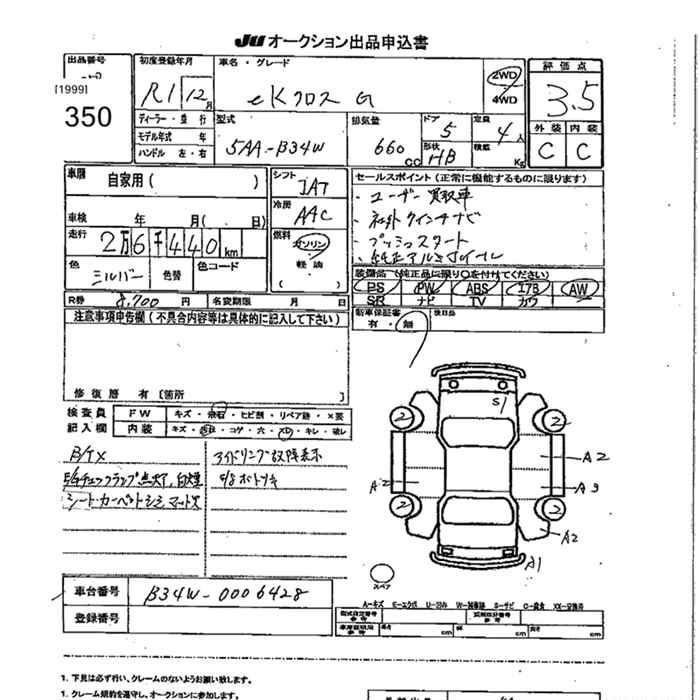 JU オークション出品申込書
出品番号
[1999]
350
初度登録年月
R1 12月
車名・グレード
eKクロス G
2WD
4WD
評価点
3.5
外装 内装
C C
ディーラー・並行
モデル年式 年
ハンドル 左・右
型式
5AA-B34W
排気量
660 cc
ドア
5
形状
HB
定員
4人
積載
Kg
車歴
自家用( )
シフト
IAT
冷房
AAC
車検 年 月( . 日)
走行
2万6千440km
燃料
ガソリン
軽油
( )
色
シルバー
色替
色コード
R券 8,700 円
名変期限 月 日
セールスポイント(正常に機能するものに限ります)
・ユーザー買取車
・社外ツインナビ
・プッシュスタート
・純正アルミホイール
装備品(純正品に限り○を付けてください)
PS PW ABS エアB AW
SR ナビ TV カワ
新車保証書
有・無
後日品
注意事項申告欄(不具合内容等は具体的に記入して下さい)
修復歴 有〔箇所 〕
検査員
記入欄
FW キズ・飛石・ヒビ割・リペア跡・×要
内装 キズ・汚れ・コゲ・穴・スレ・キレ・破レ
B/TX
E/gチェックランプ点灯、白煙
シート・カーペットシミ、マット欠
アイドリング故障表示
S1
2 2 2 2
A2
A2
A3
A2
A1
スペア
A-キズ E-エクボ U-凹み W-補修跡 S-サビ C-腐食 XX-交換済
車台番号 B34W-0006428
登録番号
型式指定番号
類別区分番号
参考
長さ cm 幅 cm 高さ cm
1. 下見は必ず行い、クレームのないようお願い致します。
1. クレーム規約を遵守し、オークションに参加します。